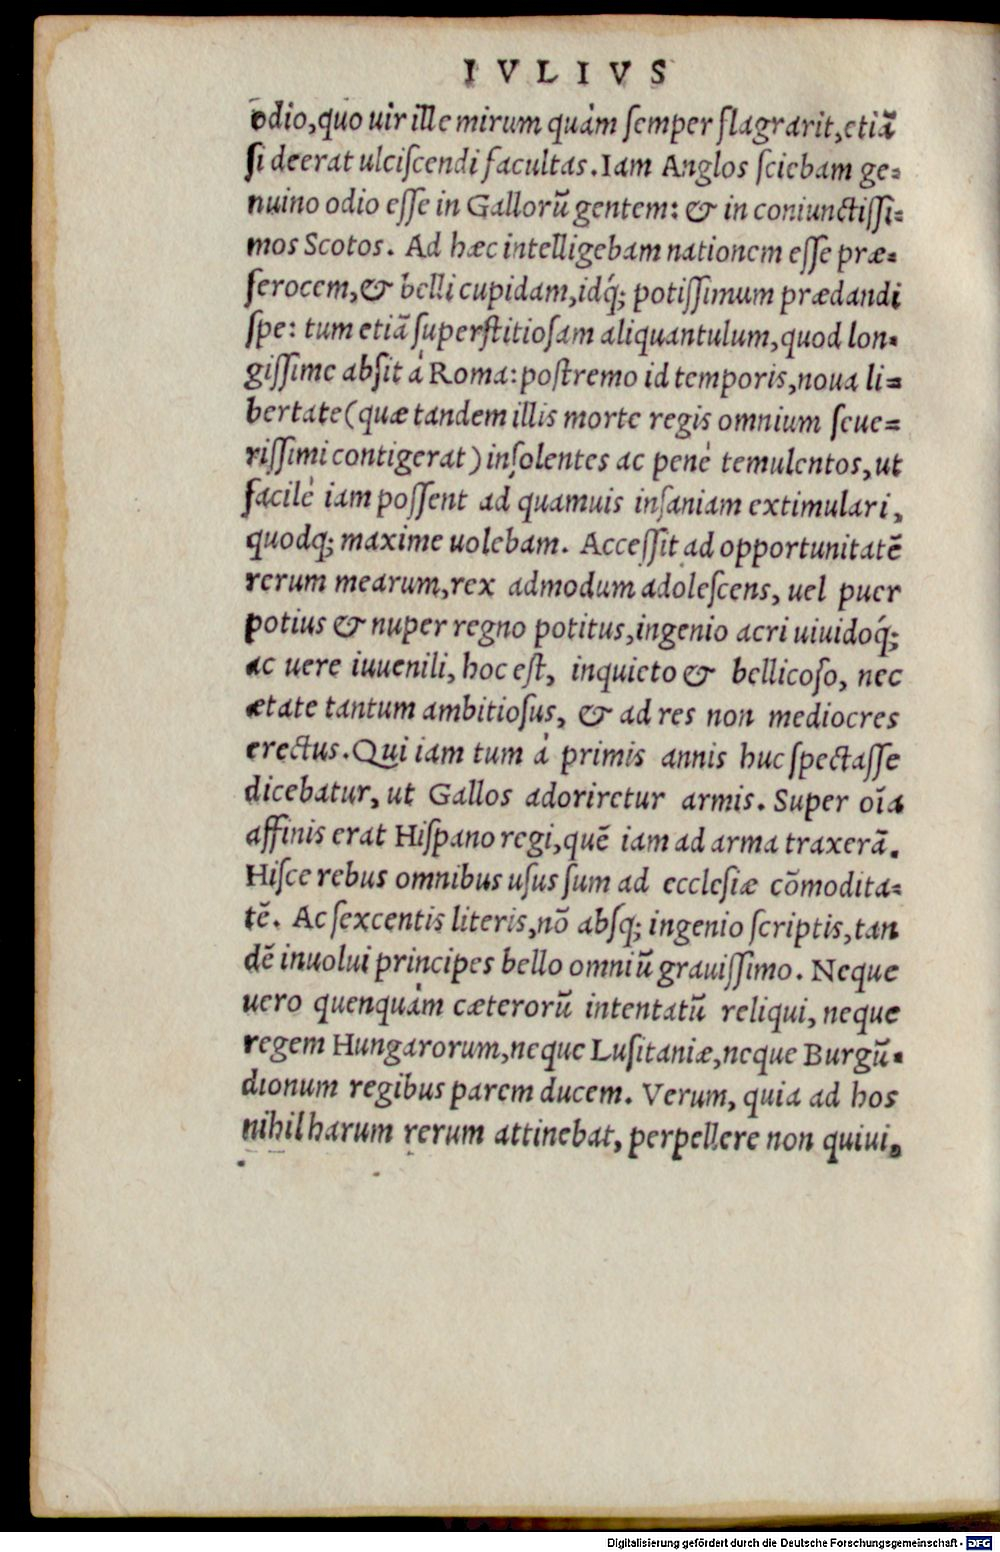 IVLIVS
odio, quo uir ille mirum quàm ſemper flagrarit, etiã
ſi deerat ulciſcendi facultas. Iam Anglos ſciebam ge-
nuino odio eſſe in Gallorũ gentem: & in coniunctiſſi-
mos Scotos. Ad hæc intelligebam nationem eſſe præ-
ferocem, & belli cupidam, idq́; potiſſimum prædandi
ſpe: tum etiã ſuperſtitioſam aliquantulum, quod lon-
giſſime abſit à Roma: poſtremo id temporis, noua li-
bertate (quæ tandem illis morte regis omnium ſeue-
riſſimi contigerat) inſolentes ac penè temulentos, ut
facilè iam poſſent ad quamuis inſaniam extimulari,
quodq; maxime uolebam. Acceſſit ad opportunitatẽ
rerum mearum, rex admodum adoleſcens, uel puer
potius & nuper regno potitus, ingenio acri uiuidoq́;
ac uere iuuenili, hoc eſt, inquieto & bellicoſo, nec
ætate tantum ambitioſus, & ad res non mediocres
erectus. Qui iam tum à primis annis huc ſpectaſſe
dicebatur, ut Gallos adoriretur armis. Super oı̃a
affinis erat Hiſpano regi, quẽ iam ad arma traxerã.
Hiſce rebus omnibus uſus ſum ad eccleſiæ cõmodita-
tẽ. Ac ſexcentis literis, nõ abſq; ingenio ſcriptis, tan
dẽ inuolui principes bello omniũ grauiſſimo. Neque
uero quenquàm cæterorũ intentatũ reliqui, neque
regem Hungarorum, neque Luſitaniæ, neque Burgũ-
dionum regibus parem ducem. Verum, quia ad hos
nihil harum rerum attinebat, perpellere non quiui,
Digitalisierung gefördert durch die Deutsche Forschungsgemeinschaft - DFG